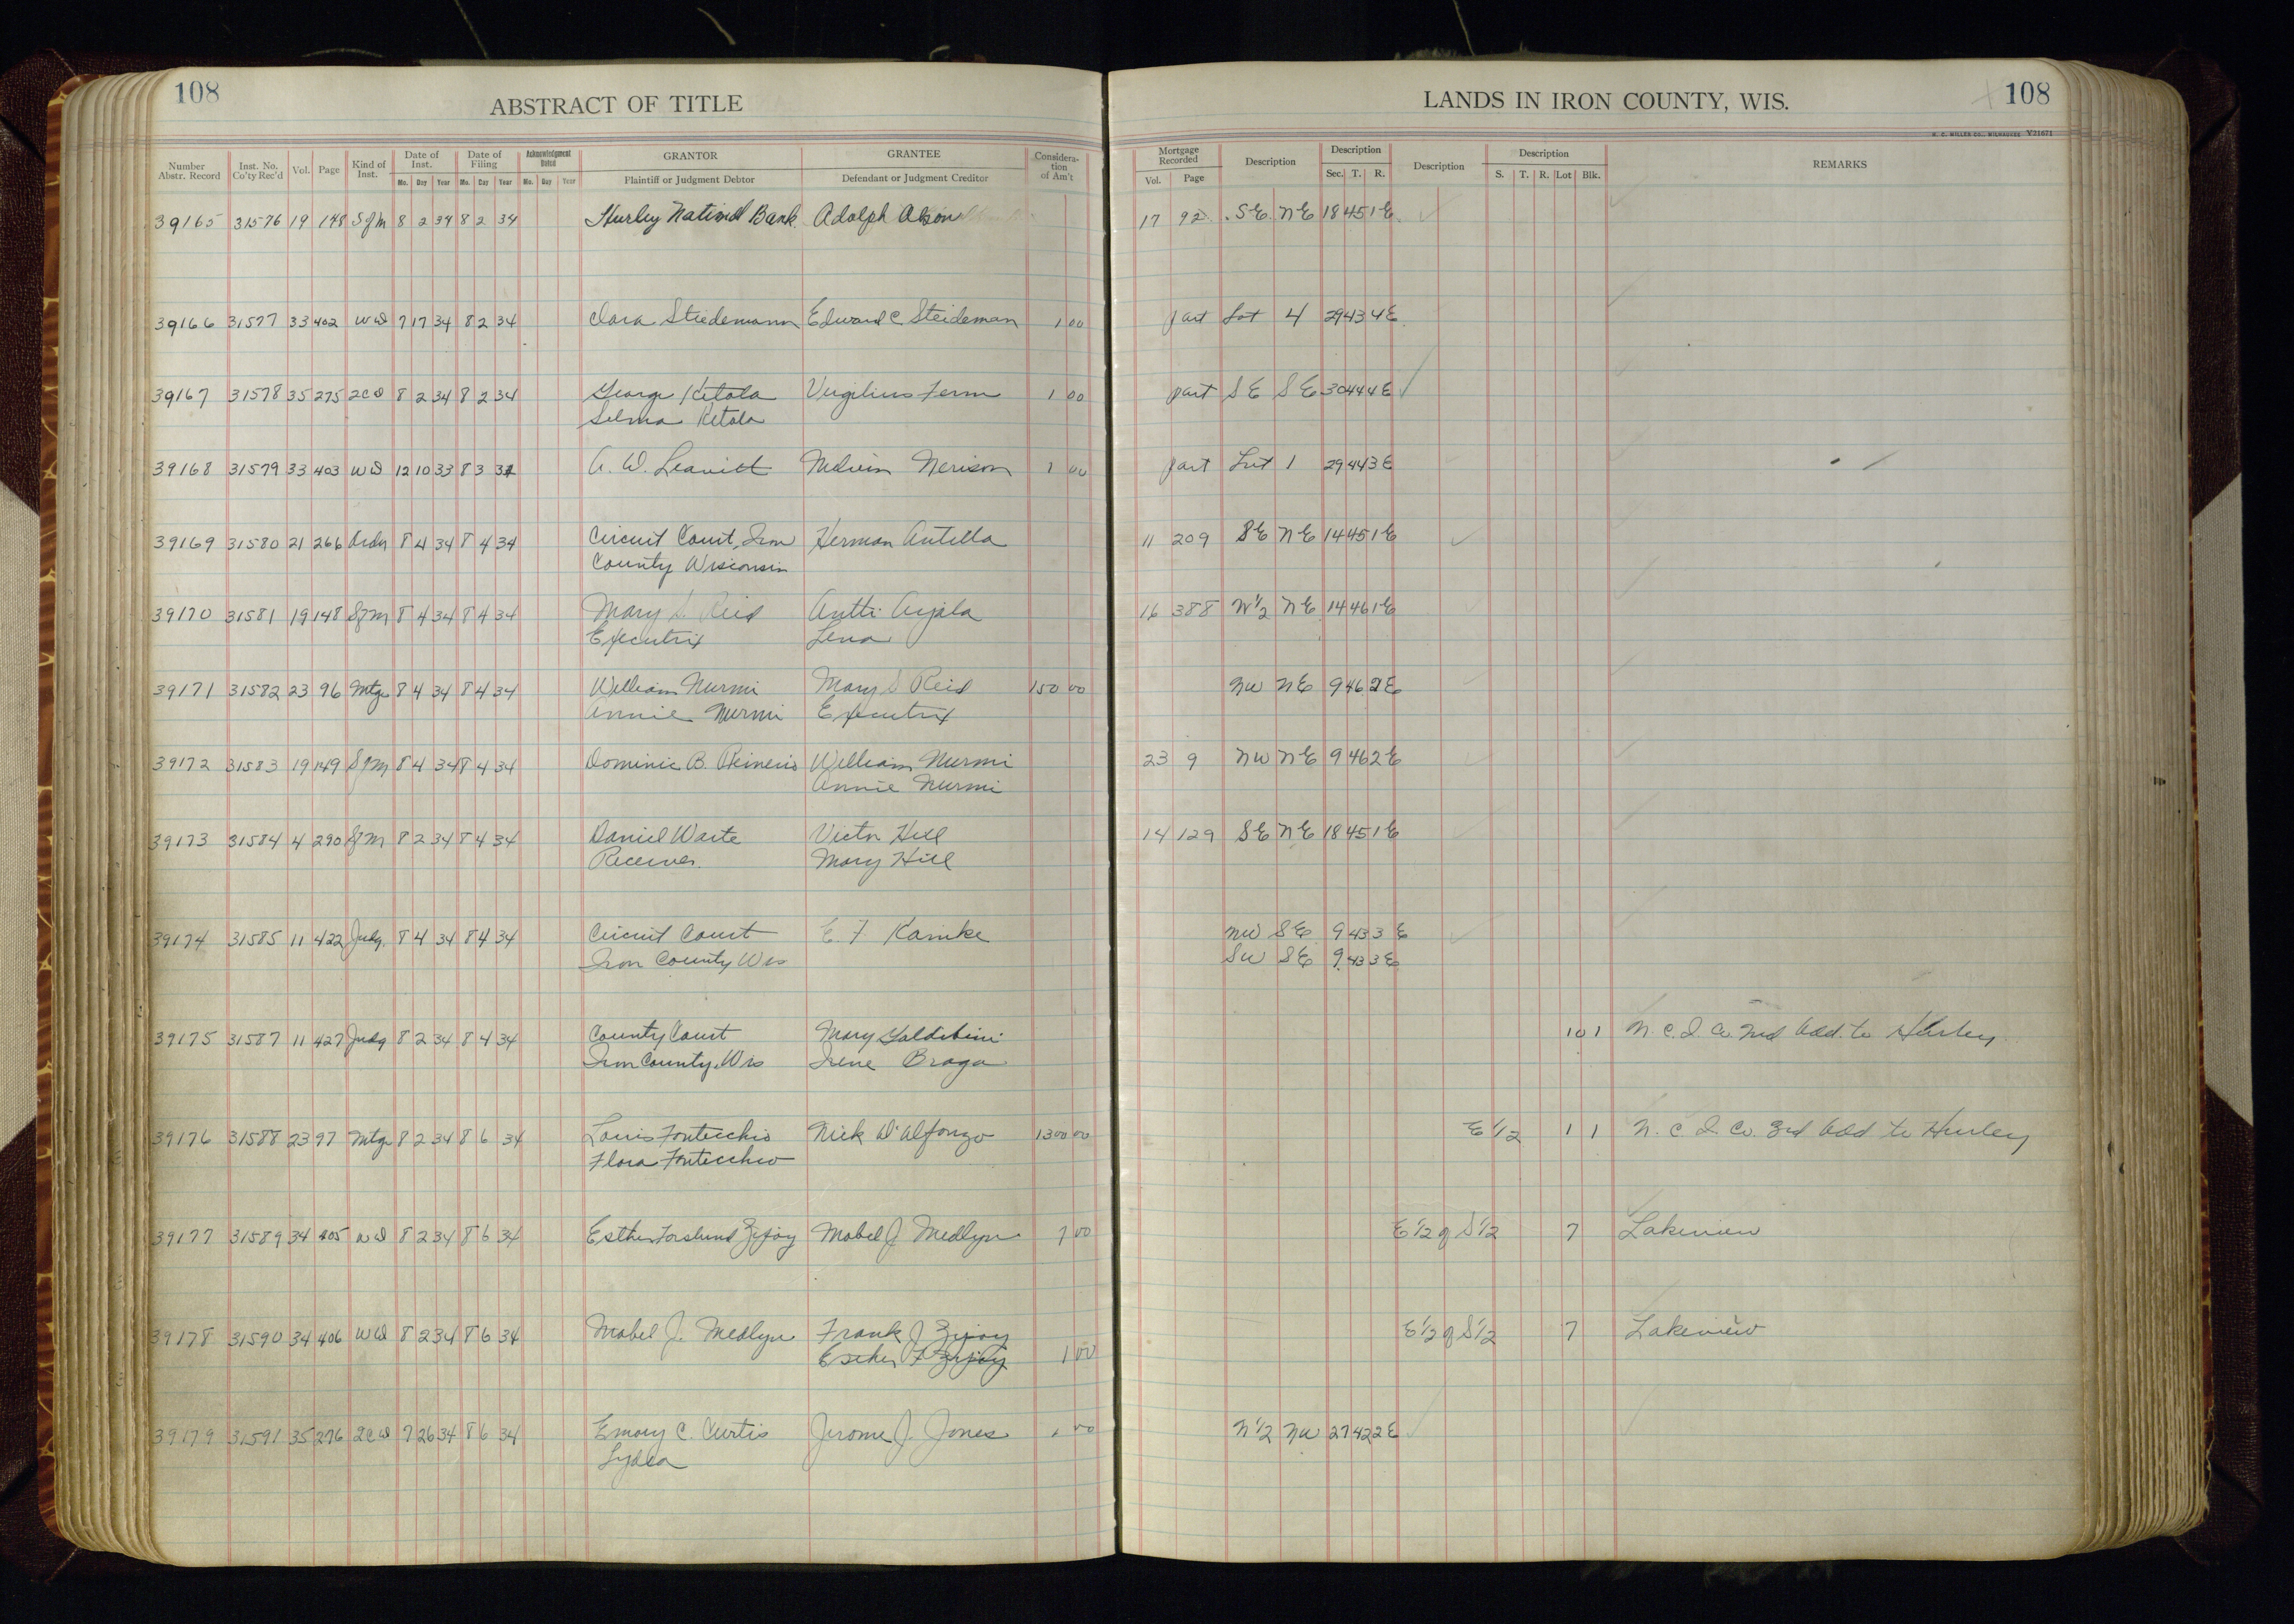 108
ABSTRACT OF TITLE
LANDS IN IRON COUNTY, WIS.
108
H. C. MILLER CO., MILWAUKEE V21671
Number Abstr. Record Inst. No. Co'ty Rec'd Vol. Page Kind of Inst. Date of Inst. Mo. Day Year Date of Filing Mo. Day Year Acknowledgment Dated Mo. Day Year GRANTOR Plaintiff or Judgment Debtor GRANTEE Defendant or Judgment Creditor Consideration of Am't Mortgage Recorded Vol. Page Description Description Sec. T. R. Description Description S. T. R. Lot Blk. REMARKS
39165 31576 19 148 SfM 8 2 34 8 2 34 Hurley National Bank Adolph 17 92 SE NE 18 45 1E
39166 31577 33 402 WD 7 17 34 8 2 34 Clara Stiedemann Edward C Steideman 1 00 part Lot 4 29 43 4E
39167 31578 35 275 2CD 8 2 34 8 2 34 George Ketola Vergilius Ferm 1 00 part SE SE 30 44 4E
Selma Ketola
39168 31579 33 403 WD 12 10 33 8 3 34 A. W. Leavitt Melvin Nerison 1 00 part Lot 1 29 44 3E
39169 31580 21 266 Order 8 4 34 8 4 34 Circuit Court, Iron Herman Antilla 11 209 SE NE 14 45 1E
County Wisconsin
39170 31581 19 148 SfM 8 4 34 8 4 34 Mary S. Reid Antti Arjala 16 388 W½ NE 14 46 1E
Executrix Lena
39171 31582 23 96 Mtge 8 4 34 8 4 34 William Nurmi Mary S Reid 150 00 NW NE 9 46 2E
Annie Nurmi Executrix
39172 31583 19 149 SfM 8 4 34 8 4 34 Dominic B. William Nurmi 23 9 NW NE 9 46 2E
Annie Nurmi
39173 31584 4 290 SfM 8 2 34 8 4 34 Daniel Waite Victor Hill 14 129 SE NE 18 45 1E
Receiver. Mary Hill
39174 31585 11 422 Judg. 8 4 34 8 4 34 Circuit Court E. F. Kamke NW SE 9 43 3E
Iron County Wis SW SE 9 43 3E
39175 31587 11 427 Judg 8 2 34 8 4 34 County Court Mary 10 1 N. C. I. Co. 2nd Add. to Hurley
Iron County, Wis Irene Braga
39176 31588 23 97 Mtge 8 2 34 8 6 34 Louis Fontecchio Nick D'Alfonzo 1300 00 E½ 1 1 N. C. I. Co. 3rd Add to Hurley
Flora Fontecchio
39177 31589 34 405 WD 8 2 34 8 6 34 Esther Forslund Mabel J. Medlyn 1 00 E½ of S½ 7 Lakeview
39178 31590 34 406 WD 8 2 34 8 6 34 Mabel J. Medlyn Frank J E½ of S½ 7 Lakeview
Esther F 1 00
39179 31591 35 276 2CD 7 26 34 8 6 34 Emory C. Curtis Jerome J. Jones 00 N½ NW 27 42 2E
Lydia